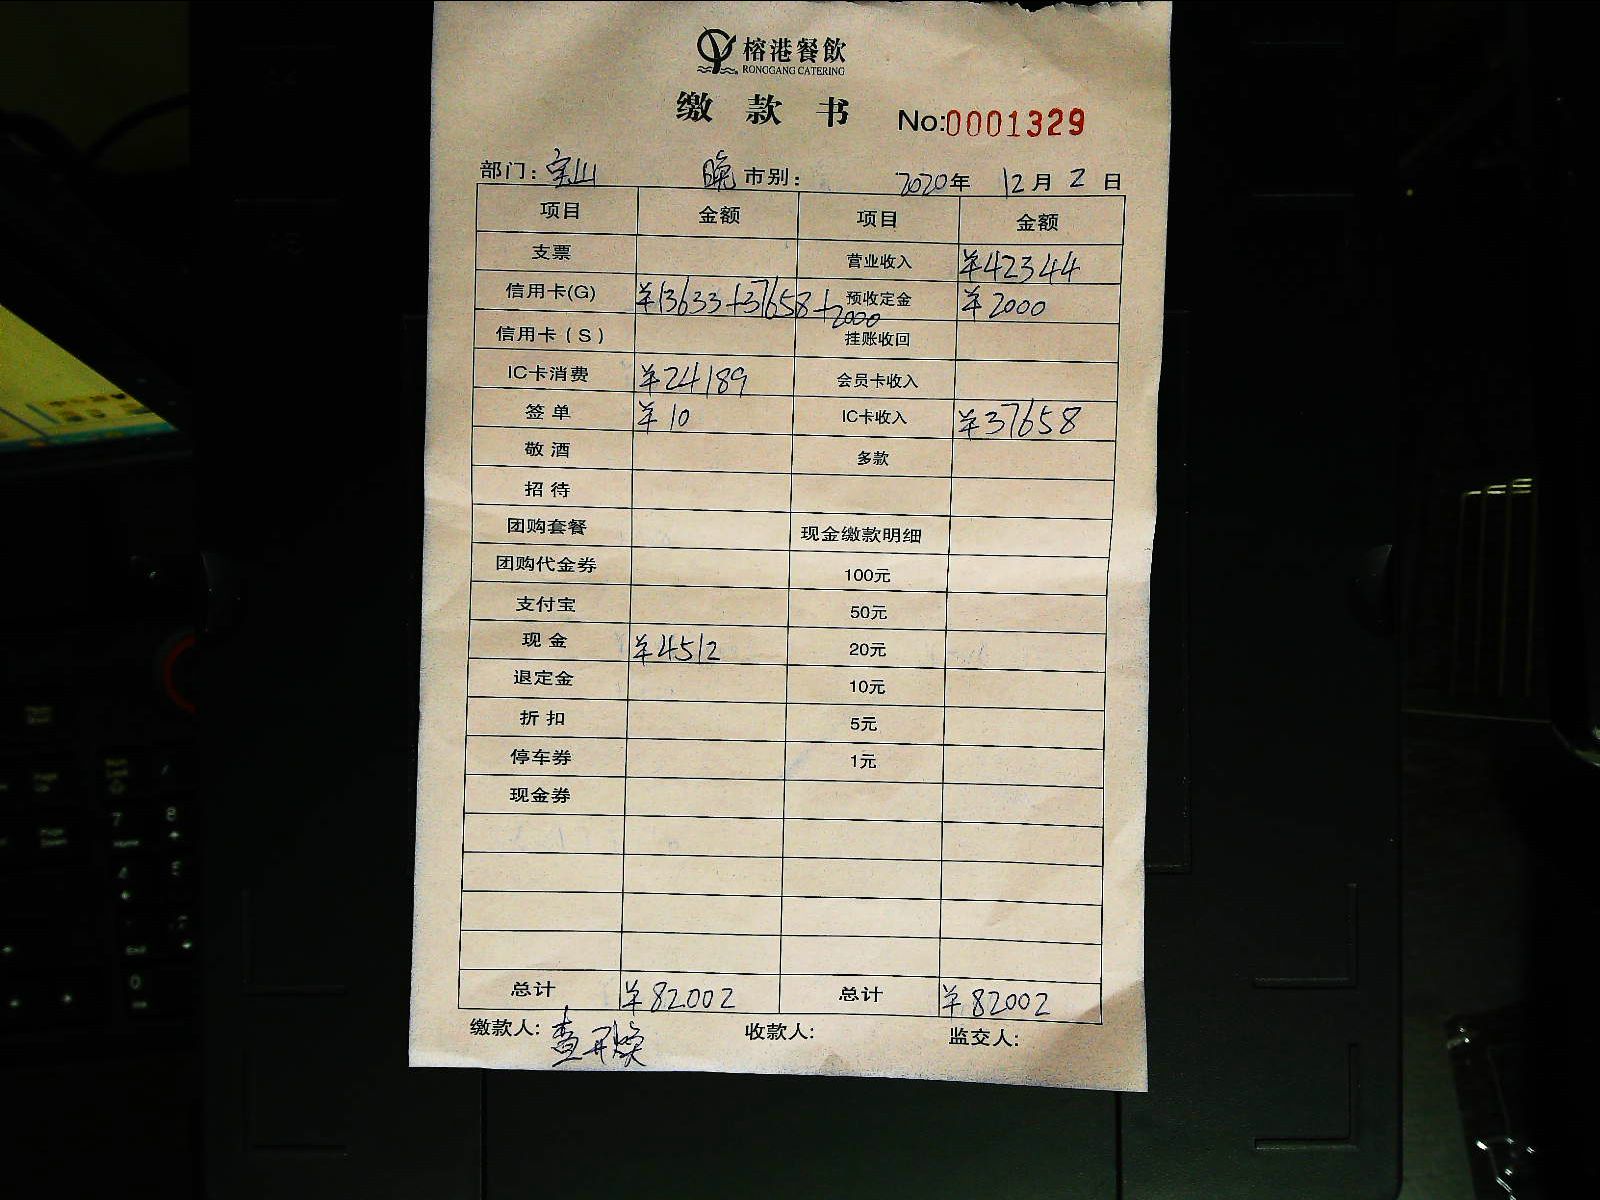 榕港餐飲
RONGGANG CATERING
缴款书 No:0001329
部门：宝山 晚市别： 2020年 12月 2日
项目 金额 项目 金额
支票 营业收入 ¥42344
信用卡(G) ¥13633+37658+2000 预收定金 ¥2000
信用卡（S） 挂账收回
IC卡消费 ¥24189 会员卡收入
签单 ¥10 IC卡收入 ¥37658
敬酒 多款
招待
团购套餐 现金缴款明细
团购代金券 100元
支付宝 50元
现金 ¥4512 20元
退定金 10元
折扣 5元
停车券 1元
现金券
总计 ¥82002 总计 ¥82002
缴款人: 收款人: 监交人: